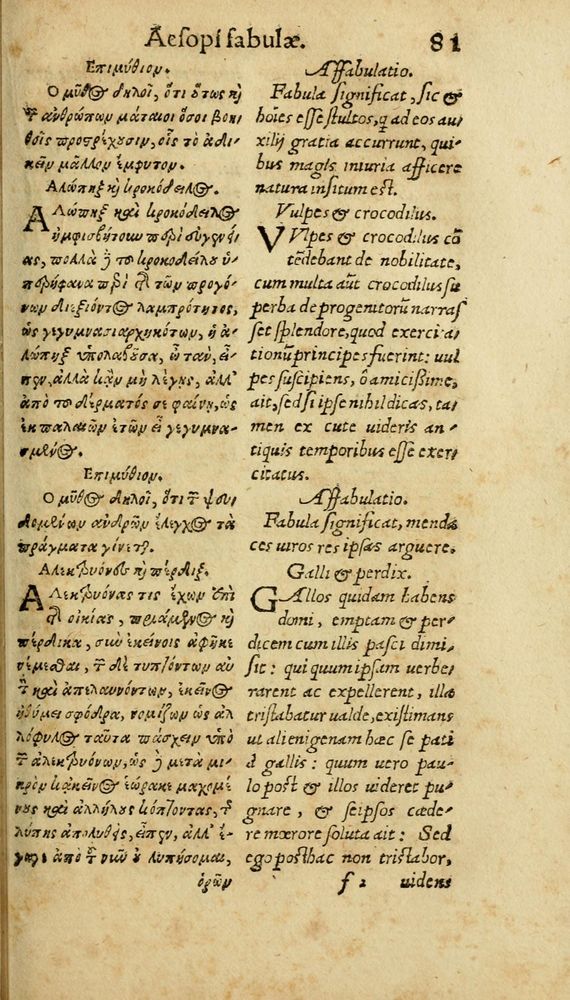 Aesopi fabulæ. 81
Επιμύθιον.
Ο μῦθος δηλοῖ, ὅτι οὕτως καὶ
τ ἀνθρώπων μάταιοι ὅσοι βοη-
θοῖς προστρέχουσιν, οἷς τὸ ἀδι-
κεῖν μᾶλλον ἔμφυτον.
Αλώπηξ καὶ κροκόδειλος.
Αλώπηξ καὶ κροκόδειλος
ἠμφισβήτουν περὶ εὐγενεί-
ας, πολλὰ δὲ τοῦ κροκοδείλου ὑ-
περήφανα περὶ τῶν προγό-
νων διεξιόντος λαμπρότητος,
ὡς γεγυμνασιαρχηκότων, ἡ ἀ-
λώπηξ ὑπολαβοῦσα, ὦ ταν, εἶ-
πεν, ἀλλὰ κἂν μὴ λέγῃς, ἀλλ'
ἀπὸ τοῦ δέρματός σε φαίνῃ, ὡς
ἐκ παλαιῶν ἐτῶν εἶ γεγυμνα-
σμένος.
Επιμύθιον.
Ο μῦθος δηλοῖ, ὅτι τ ψευ-
δομένων ἀνδρῶν ἔλεγχος τὰ
πράγματα γίνεται.
Αλεκτρυόνες καὶ πέρδιξ.
Αλεκτρυόνας τις ἔχων ἐπὶ
τῆς οἰκίας, πριάμενος καὶ
πέρδικα, σὺν ἐκείνοις ἀφῆκε
νέμεσθαι, τ δὲ τυπτόντων αὐ
τ καὶ ἀπελαυνόντων, ἐκεῖνος
ἠθύμει σφόδρα, νομίζων ὡς ἀλ
λόφυλος ταῦτα πάσχειν ὑπὸ
τ ἀλεκτρυόνων, ὡς δὲ μετὰ μι-
κρὸν κἀκείνους ἑώρακε μαχομέ
νους καὶ ἀλλήλους κόπτοντας, τ
λύπης ἀπολυθεὶς, εἶπεν, ἀλλ' ἔ-
γωγε ἀπὸ τ νῦν οὐ λυπήσομαι,
ὁρῶν
Affabulatio.
Fabula significat, sic &
hoies esse stultos, q ad eos au/
xilij gratia accurrunt, qui/
bus magis iniuria afficere
natura insitum est.
Vulpes & crocodilus.
VVlpes & crocodilus cō
tēdebant de nobilitate,
cum multa aūt crocodilus su
perba de progenitorū narras/
set splendore, quod exercita/
tionū principes fuerint: uul
pes suscipiens, ô amicissime,
ait, sed si ipse nihil dicas, ta/
men ex cute uideris an-
tiquis temporibus esse exer/
citatus.
Affabulatio.
Fabula significat, menda
ces uiros res ipsas arguere.
Galli & perdix.
GAllos quidam habens
domi, emptam & per/
dicem cum illis pasci dimi/
sit: qui quum ipsam uerbe/
rarent ac expellerent, illa
tristabatur ualde, existimans
ut alienigenam hæc se pati
à gallis: quum uero pau/
lo post & illos uideret pu/
gnare, & seipsos cæde/
re mœrore soluta ait: Sed
ego posthac non tristabor,
f 2 uidens